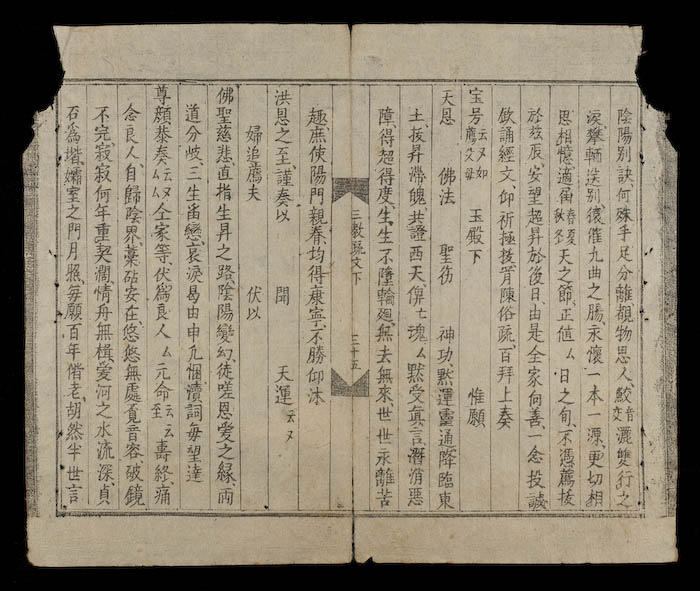 陰陽別訣、何殊手足分離、覩物思人、鮫音文灑雙行之
淚、攀輀送別、猿催九曲之腸、永懷一本一源、更切相
思相憶、適届春夏秋冬天之節、正值厶日之旬、不憑薦拔
於兹辰、安望超昇於後日、由是全家向善、一念投誠
飲誦經文、仰祈極拔、胥陳俗疏、百拜上奏
宝号云又如薦父母 玉殿下 惟願
天恩 佛法 聖德 神功、黙運靈通、降臨東
土、拔昇滯魄、共證西天、俾亡魂厶黙受真言、潛消惡
障、得超得度、生生不墮輪廻、無去無來、世世永離苦
趣、庶使陽門親眷、均得康寧、不勝仰沐
洪恩之至、謹奏以 聞 天運云又
婦追薦夫 伏以
佛聖慈悲、直指生昇之路、陰陽變幻、徒嗟恩愛之縁、兩
道分岐、三生留戀、哀淚曷由申、凡悃瀆詞、每望達
尊顔、恭奏厶云又仝家等、伏為良人厶元命云云至壽終、痛
念良人、自歸陰界、藁砧安在、悠悠無處覓音容、破鏡
不完、寂寂何年重契濶、情舟無楫、愛河之水流深、貞
石為堦、孀室之門月照、每願百年偕老、胡然半世言
三教疏文下 三十五